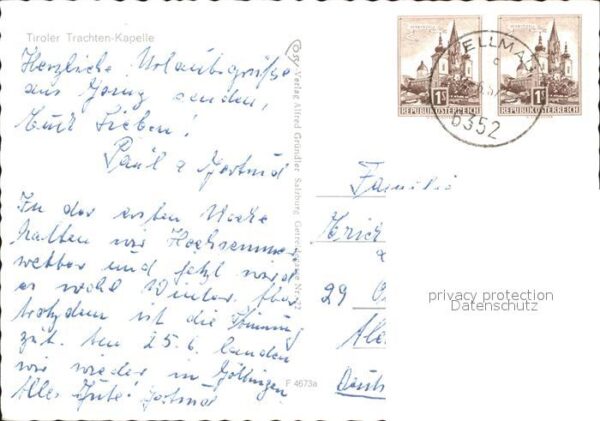 Tiroler Trachten-Kapelle
Herzliche Urlaubsgrüße
aus senden,
Euch Lieben!
Paul u Gertrud
In der ersten Woche
hatten wir Hochsommer
wetter und jetzt wird
es wohl Winter. Aber
trotzdem ist die Stimmung
gut. Am 25.6. landen
wir wieder in Göttingen
Alles Gute! Gertrud
Verlag Alfred Gründler Salzburg
F 4673a
ELLMAU
6352
1S
REPUBLIK ÖSTERREICH
1S
REPUBLIK ÖSTERREICH
Familie
Erich
29
privacy protection
Datenschutz